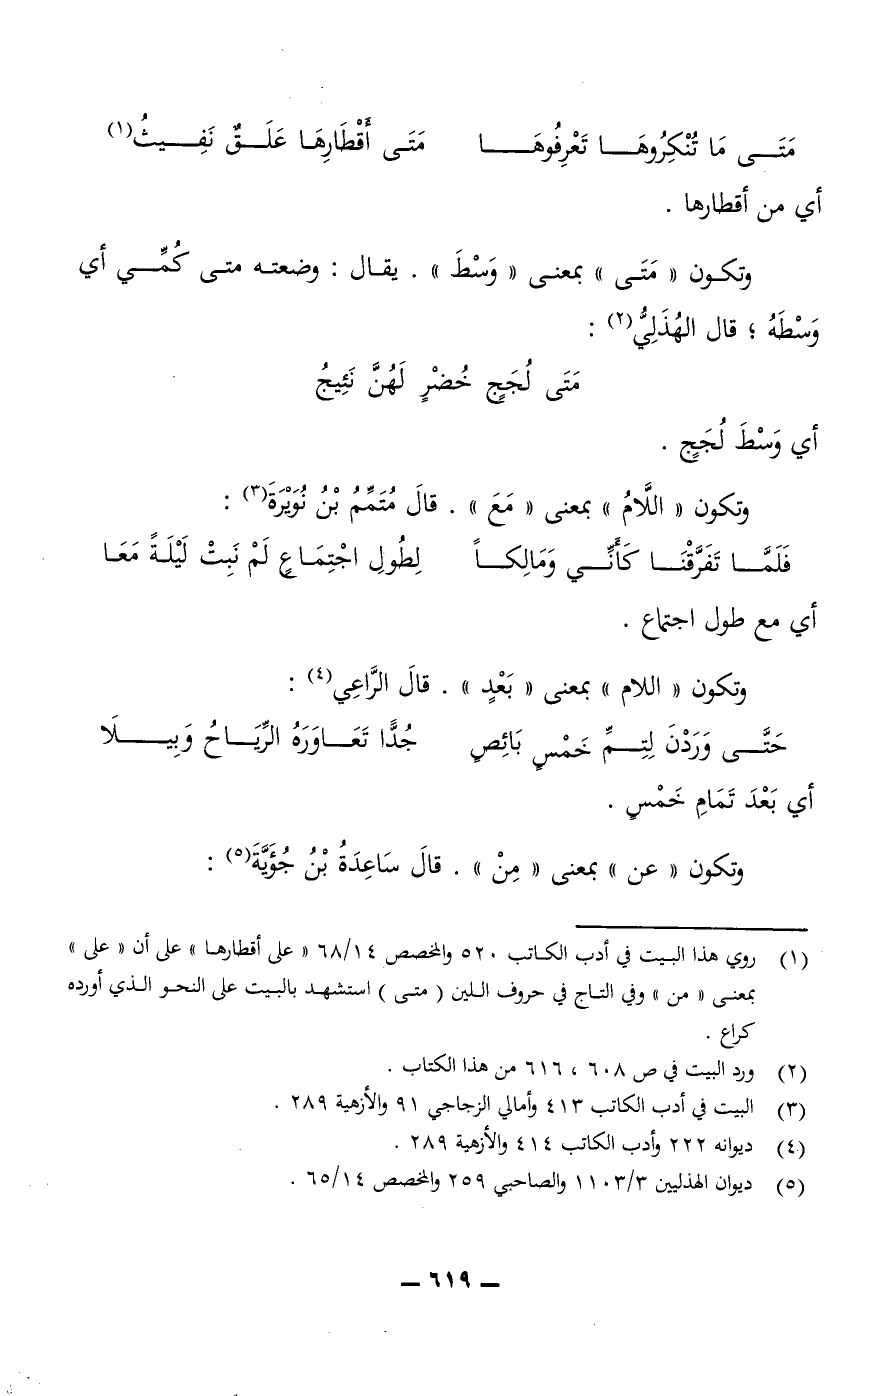 مَتَى مَا تُنْكِرُوهَا تَعْرِفُوهَا مَتَى أَقْطَارِهَا عَلَقٌ نَفِيثُ(١)
أي من أقطارها .
وتكون « مَتَى » بمعنى « وَسْطَ » . يقال : وضعته متى كُمِّي أي
وَسْطَهُ ؛ قال الهُذَلِيُّ(٢) :
مَتَى لُجَجٍ خُضْرٍ لَهُنَّ نَئِيجُ
أي وَسْطَ لُجَجٍ .
وتكون « اللَّامُ » بمعنى « مَعَ » . قالَ مُتَمِّمُ بْنُ نُوَيْرَةَ(٣) :
فَلَمَّا تَفَرَّقْنَا كَأَنِّي وَمَالِكاً لِطُولِ اجْتِمَاعٍ لَمْ نَبِتْ لَيْلَةً مَعَا
أي مع طول اجتماع .
وتكون « اللام » بمعنى « بَعْدٍ » . قالَ الرَّاعِي(٤) :
حَتَّى وَرَدْنَ لِتِمِّ خَمْسٍ بَائِصٍ جُدًّا تَعَاوَرَهُ الرِّيَاحُ وَبِيلَا
أي بَعْدَ تَمَامِ خَمْسٍ .
وتكون « عن » بمعنى « مِنْ » . قالَ سَاعِدَةُ بْنُ جُؤَيَّةَ(٥) :
(١) روي هذا البيت في أدب الكاتب ٥٢٠ والمخصص ٦٨/١٤ « على أقطارها » على أن « على »
بمعنى « من » وفي التاج في حروف اللين ( متى ) استشهد بالبيت على النحو الذي أورده
كراع .
(٢) ورد البيت في ص ٦٠٨ ، ٦١٦ من هذا الكتاب .
(٣) البيت في أدب الكاتب ٤١٣ وأمالي الزجاجي ٩١ والأزهية ٢٨٩ .
(٤) ديوانه ٢٢٢ وأدب الكاتب ٤١٤ والأزهية ٢٨٩ .
(٥) ديوان الهذليين ١١٠٣/٣ والصاحبي ٢٥٩ والمخصص ٦٥/١٤ .
– ٦١٩ –